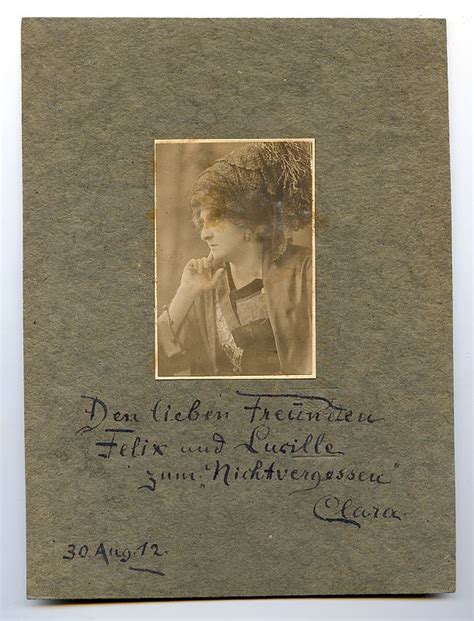 Den lieben Freunden
Felix und Lucille
zum "Nichtvergessen"
Clara.
30. Aug. 12.